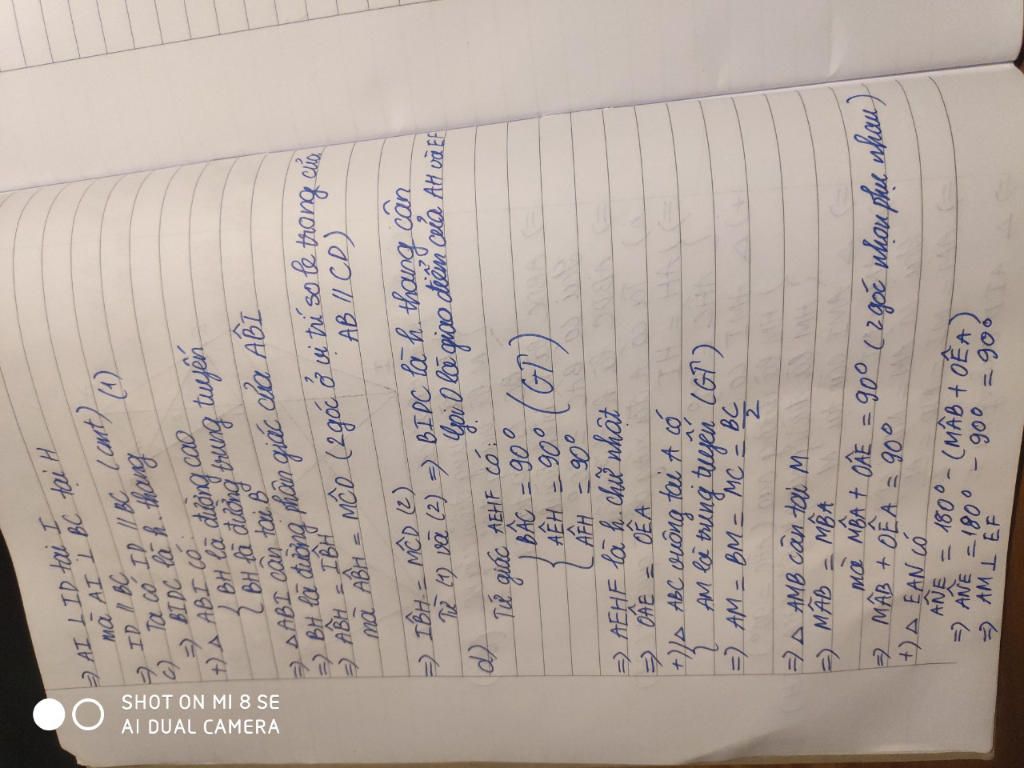 ⇒ AI ⊥ ID tại I
mà AI ⊥ BC tại H
⇒ ID // BC (cmt) (1)
c) Ta có ID // BC
⇒ BIDC là h. thang
+) △ ABI có:
{ BH là đường cao
BH là đường trung tuyến
⇒ △ ABI cân tại B
⇒ BH là đường phân giác của ABI
⇒ ABH = IBH
mà ABH = MCD (2 góc ở vị trí so le trong của AB // CD)
⇒ IBH = MCD (2)
Từ (1) và (2) ⇒ BIDC là h. thang cân
d) Gọi O là giao điểm của AH và EF
Tứ giác AEHF có:
{ BAC = 90°
AEH = 90° (GT)
AEH = 90°
⇒ AEHF là h. chữ nhật
⇒ OAE = OEA
+) △ ABC vuông tại A có
{ AM là trung tuyến (GT)
⇒ AM = BM = MC = BC/2
⇒ △ AMB cân tại M
⇒ MAB = MBA
mà MBA + OAE = 90° (2 góc nhọn phụ nhau)
⇒ MAB + OEA = 90°
+) △ EAN có
ANE = 180° - (MAB + OEA)
⇒ ANE = 180° - 90° = 90°
⇒ AM ⊥ EF
SHOT ON MI 8 SE
AI DUAL CAMERA